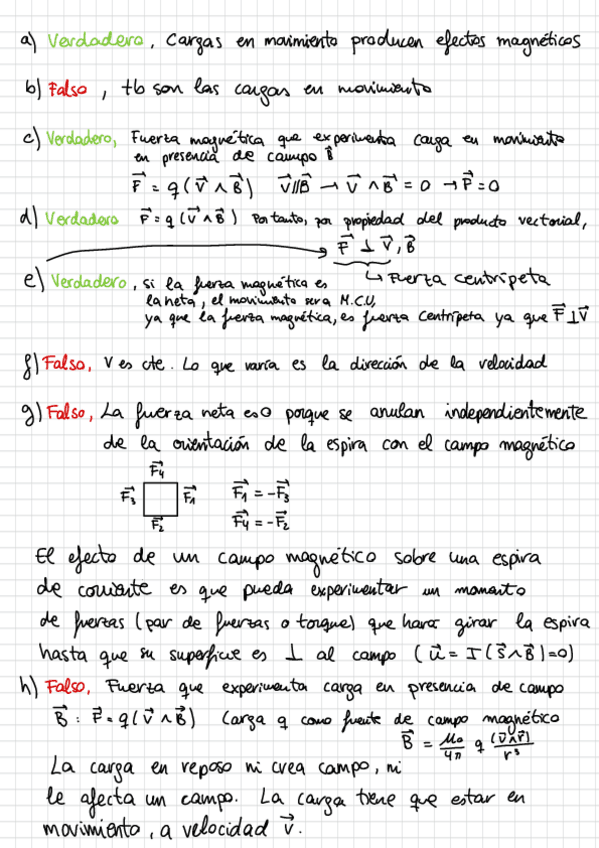 a) Verdadero, Cargas en movimiento producen efectos magnéticos
b) Falso, tb son las cargas en movimiento
c) Verdadero, Fuerza magnética que experimenta carga en movimiento
en presencia de campo B⃗
F⃗ = q(V⃗ ∧ B⃗) V⃗//B⃗ → V⃗ ∧ B⃗ = 0 → F⃗ = 0
d) Verdadero F⃗ = q(V⃗ ∧ B⃗) Por tanto, por propiedad del producto vectorial,
F⃗ ⊥ V⃗, B⃗
↳ Fuerza centrípeta
e) Verdadero, si la fuerza magnética es
la neta, el movimiento sera M.C.U,
ya que la fuerza magnética, es fuerza centrípeta ya que F⃗⊥V⃗
f) Falso, V es cte. Lo que varía es la dirección de la velocidad
g) Falso, La fuerza neta es 0 porque se anulan independientemente
de la orientación de la espira con el campo magnético
F⃗4
F⃗3 F⃗1 F⃗1 = -F⃗3
F⃗2 F⃗4 = -F⃗2
El efecto de un campo magnético sobre una espira
de corriente es que pueda experimentar un momento
de fuerzas (par de fuerzas o torque) que hará girar la espira
hasta que su superficie es ⊥ al campo (u⃗ = I(S⃗∧B⃗)=0)
h) Falso, Fuerza que experimenta carga en presencia de campo
B⃗ : F⃗ = q(V⃗ ∧ B⃗) Carga q como fuente de campo magnético
B⃗ = μ0/4π q (v⃗∧r⃗)/r³
La carga en reposo ni crea campo, ni
le afecta un campo. La carga tiene que estar en
movimiento, a velocidad v⃗.